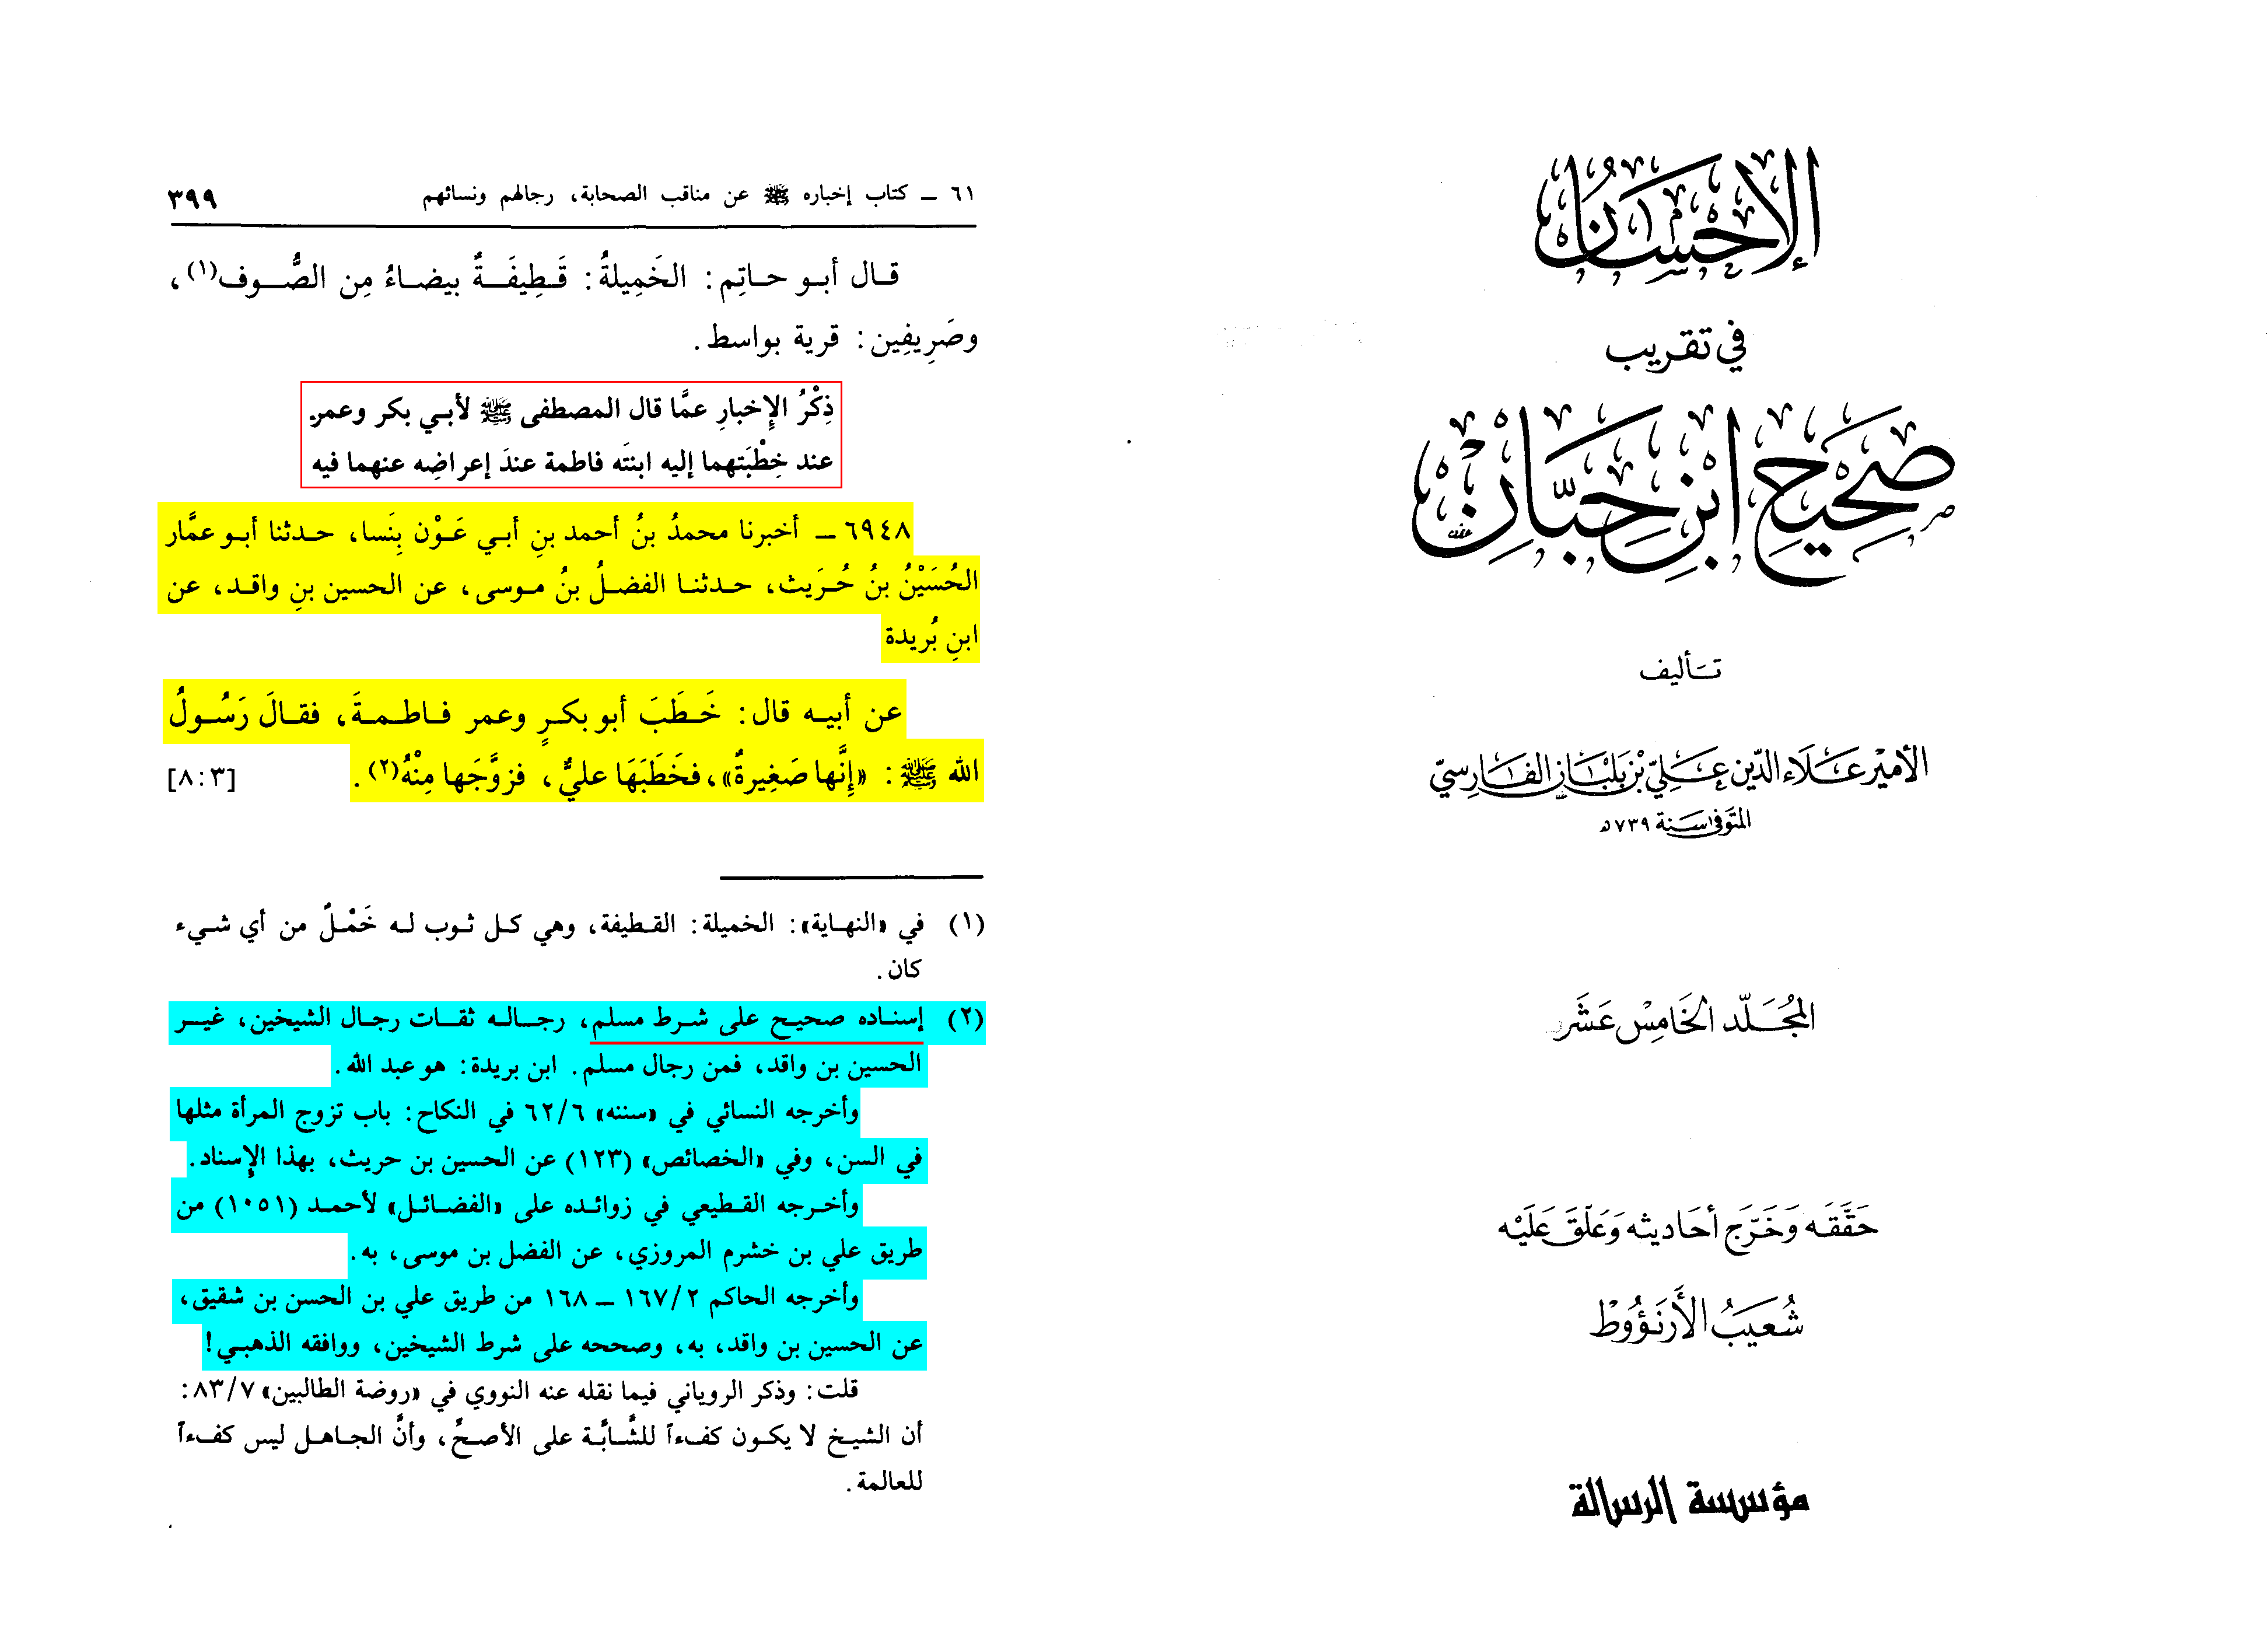 الإحسان
في تقريب
صحيح ابن حبان
تأليف
الأمير علاء الدين علي بن بلبان الفارسي
المتوفى سنة ٧٣٩ ه
المجلد الخامس عشر
حققه وخرج أحاديثه وعلق عليه
شعيب الأرنؤوط
مؤسسة الرسالة
٦١ ــ كتاب إخباره ﷺ عن مناقب الصحابة، رجالهم ونسائهم ٣٩٩
قال أبو حاتِم: الخَمِيلةُ: قَطِيفَةٌ بيضاءُ مِن الصُّوف(١)،
وصَرِيفِين: قرية بواسط.
ذِكْرُ الإِخبارِ عمَّا قال المصطفى ﷺ لأبي بكر وعمر
عند خِطْبَتهما إليه ابنتَه فاطمة عندَ إعراضِه عنهما فيه
٦٩٤٨ ــ أخبرنا محمدُ بنُ أحمد بنِ أبي عَوْن بِنَسا، حدثنا أبو عمَّار
الحُسَيْنُ بنُ حُرَيث، حدثنا الفضلُ بنُ موسى، عن الحسين بنِ واقد، عن
ابنِ بُريدة
عن أبيه قال: خَطَبَ أبو بكرٍ وعمر فاطمةَ، فقالَ رَسُولُ
الله ﷺ: «إِنَّها صَغِيرةٌ»، فخَطَبَهَا عليٌّ، فزوَّجَها مِنْهُ(٢). [٨:٣]
(١) في «النهاية»: الخميلة: القطيفة، وهي كل ثوب له خَمْلٌ من أي شيء
كان.
(٢) إسناده صحيح على شرط مسلم، رجاله ثقات رجال الشيخين، غير
الحسين بن واقد، فمن رجال مسلم. ابن بريدة: هو عبد الله.
وأخرجه النسائي في «سننه» ٦٢/٦ في النكاح: باب تزوج المرأة مثلها
في السن، وفي «الخصائص» (١٢٣) عن الحسين بن حريث، بهذا الإسناد.
وأخرجه القطيعي في زوائده على «الفضائل» لأحمد (١٠٥١) من
طريق علي بن خشرم المروزي، عن الفضل بن موسى، به.
وأخرجه الحاكم ١٦٧/٢ ــ ١٦٨ من طريق علي بن الحسن بن شقيق،
عن الحسين بن واقد، به، وصححه على شرط الشيخين، ووافقه الذهبي!
قلت: وذكر الروياني فيما نقله عنه النووي في «روضة الطالبين» ٨٣/٧:
أن الشيخ لا يكون كفءاً للشَّابَّة على الأصحِّ، وأنَّ الجاهل ليس كفءاً
للعالمة.